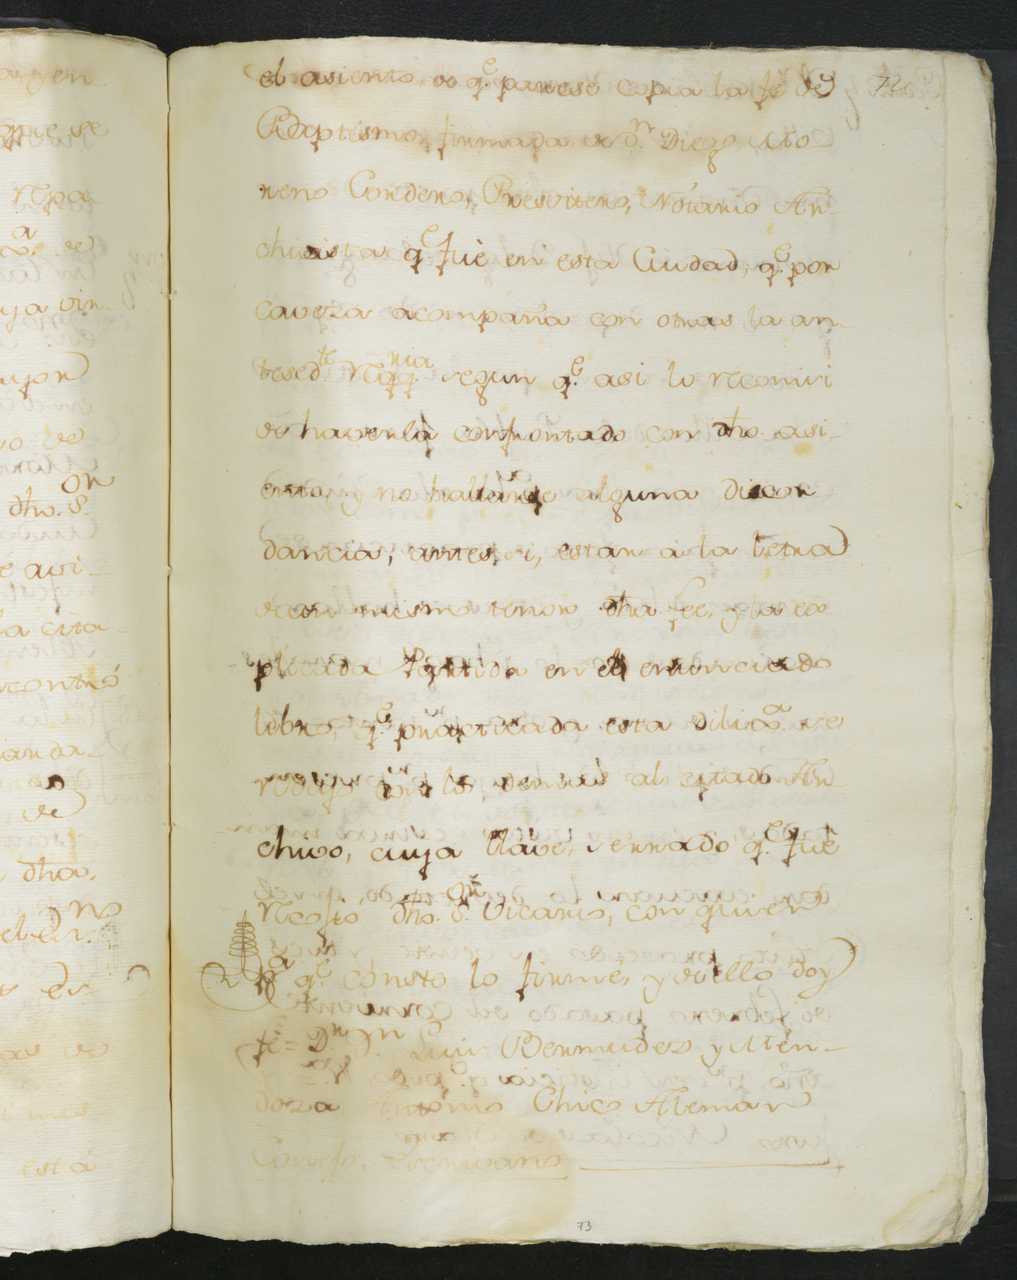 el asiento de q.e parese copia la fe de 72
Baptismo, firmada de D.n Diego Mo
reno Cordero, Presvitero, Notario Ar
chivista q.e fuè en esta Ciudad, q.e por
caveza acompaña con otras la an-
teced.te segun q.e asi lo reconosi
de haverla confrontado con dho. asi-
ento, y no hallarse alguna discor
dancia, antes si, estar à la letra
de un mismo tenor dha. fee, y la co
piada Partida en el enunciado
libro, q.e practicada esta dilig.a se
con los demas al citado Ar
chivo, cuya llave, serrado q.e fuè
dho. S.or Vicario, con quien
p.a q.e conste lo firmè, y de ello doy
fè= D.r D.n Luis Bermudez y Men-
doza Antonio Chico Aleman